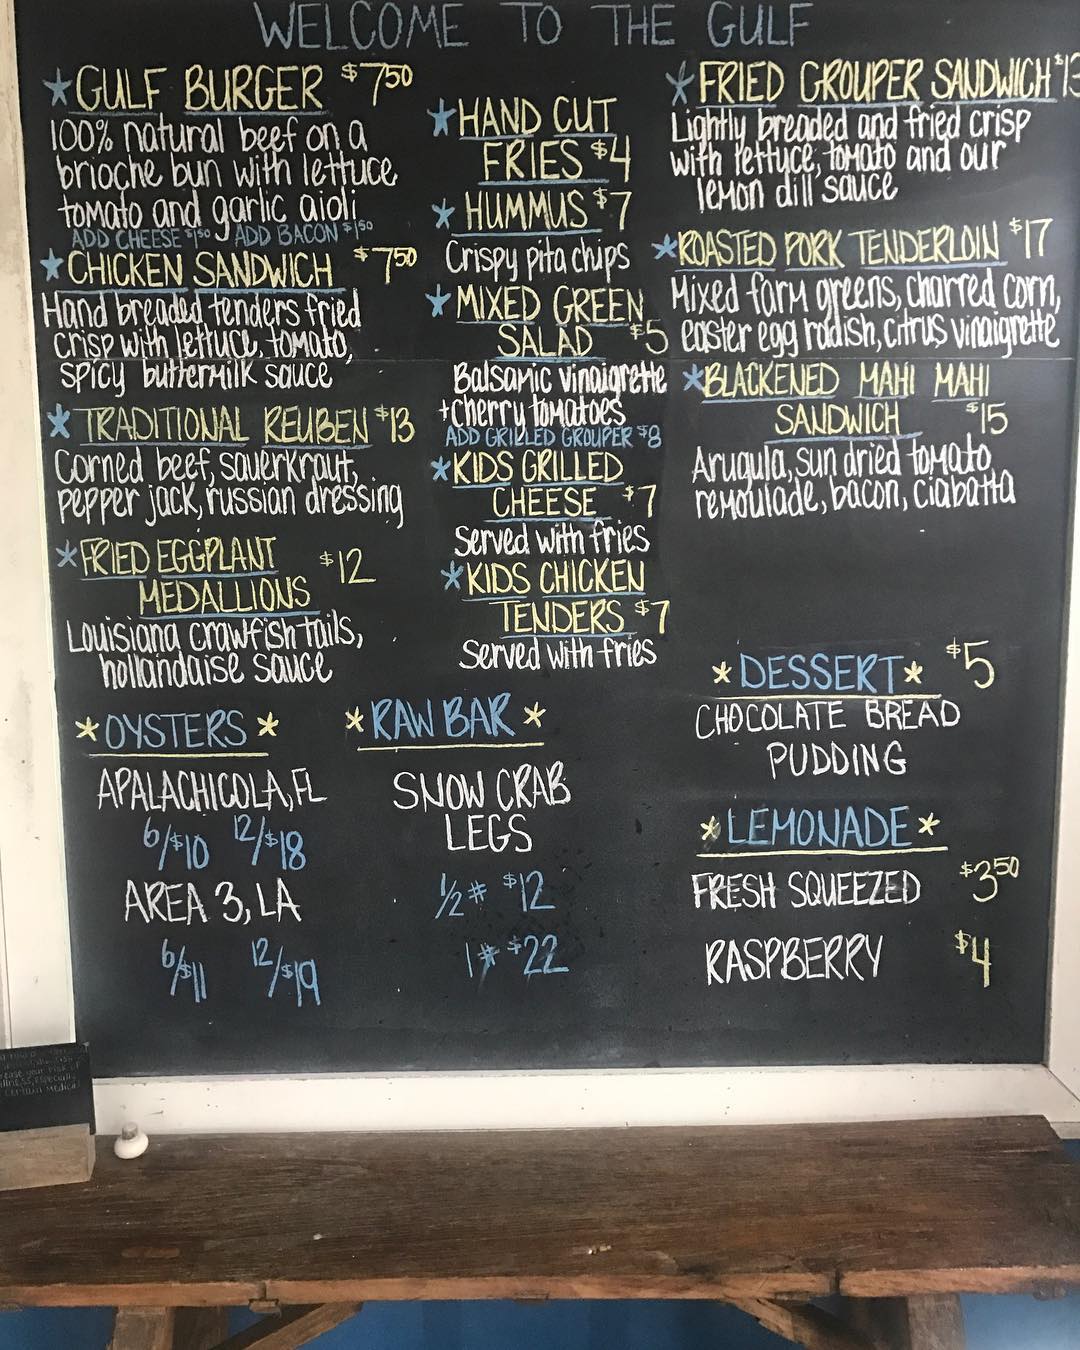 WELCOME TO THE GULF
* GULF BURGER $7.50
100% natural beef on a
brioche bun with lettuce
tomato and garlic aioli
ADD CHEESE $1.50 ADD BACON $1.50
* CHICKEN SANDWICH $7.50
Hand breaded tenders fried
crisp with lettuce, tomato,
spicy buttermilk sauce
* TRADITIONAL REUBEN $13
Corned beef, sauerkraut,
pepper jack, russian dressing
* FRIED EGGPLANT
MEDALLIONS $12
Louisiana crawfish tails,
hollandaise sauce
* HAND CUT
FRIES $4
* HUMMUS $7
Crispy pita chips
* MIXED GREEN
SALAD $5
Balsamic vinaigrette
+ cherry tomatoes
ADD GRILLED GROUPER $8
* KIDS GRILLED
CHEESE $7
Served with fries
* KIDS CHICKEN
TENDERS $7
Served with fries
* FRIED GROUPER SANDWICH $13
Lightly breaded and fried crisp
with lettuce, tomato and our
lemon dill sauce
* ROASTED PORK TENDERLOIN $17
Mixed farm greens, charred corn,
easter egg radish, citrus vinaigrette
* BLACKENED MAHI MAHI
SANDWICH $15
Arugula, sun dried tomato
remoulade, bacon, ciabatta
* OYSTERS *
APALACHICOLA, FL
6/$10 12/$18
AREA 3, LA
6/$11 12/$19
* RAW BAR *
SNOW CRAB
LEGS
1/2 # $12
1 # $22
* DESSERT * $5
CHOCOLATE BREAD
PUDDING
* LEMONADE *
FRESH SQUEEZED $3.50
RASPBERRY $4